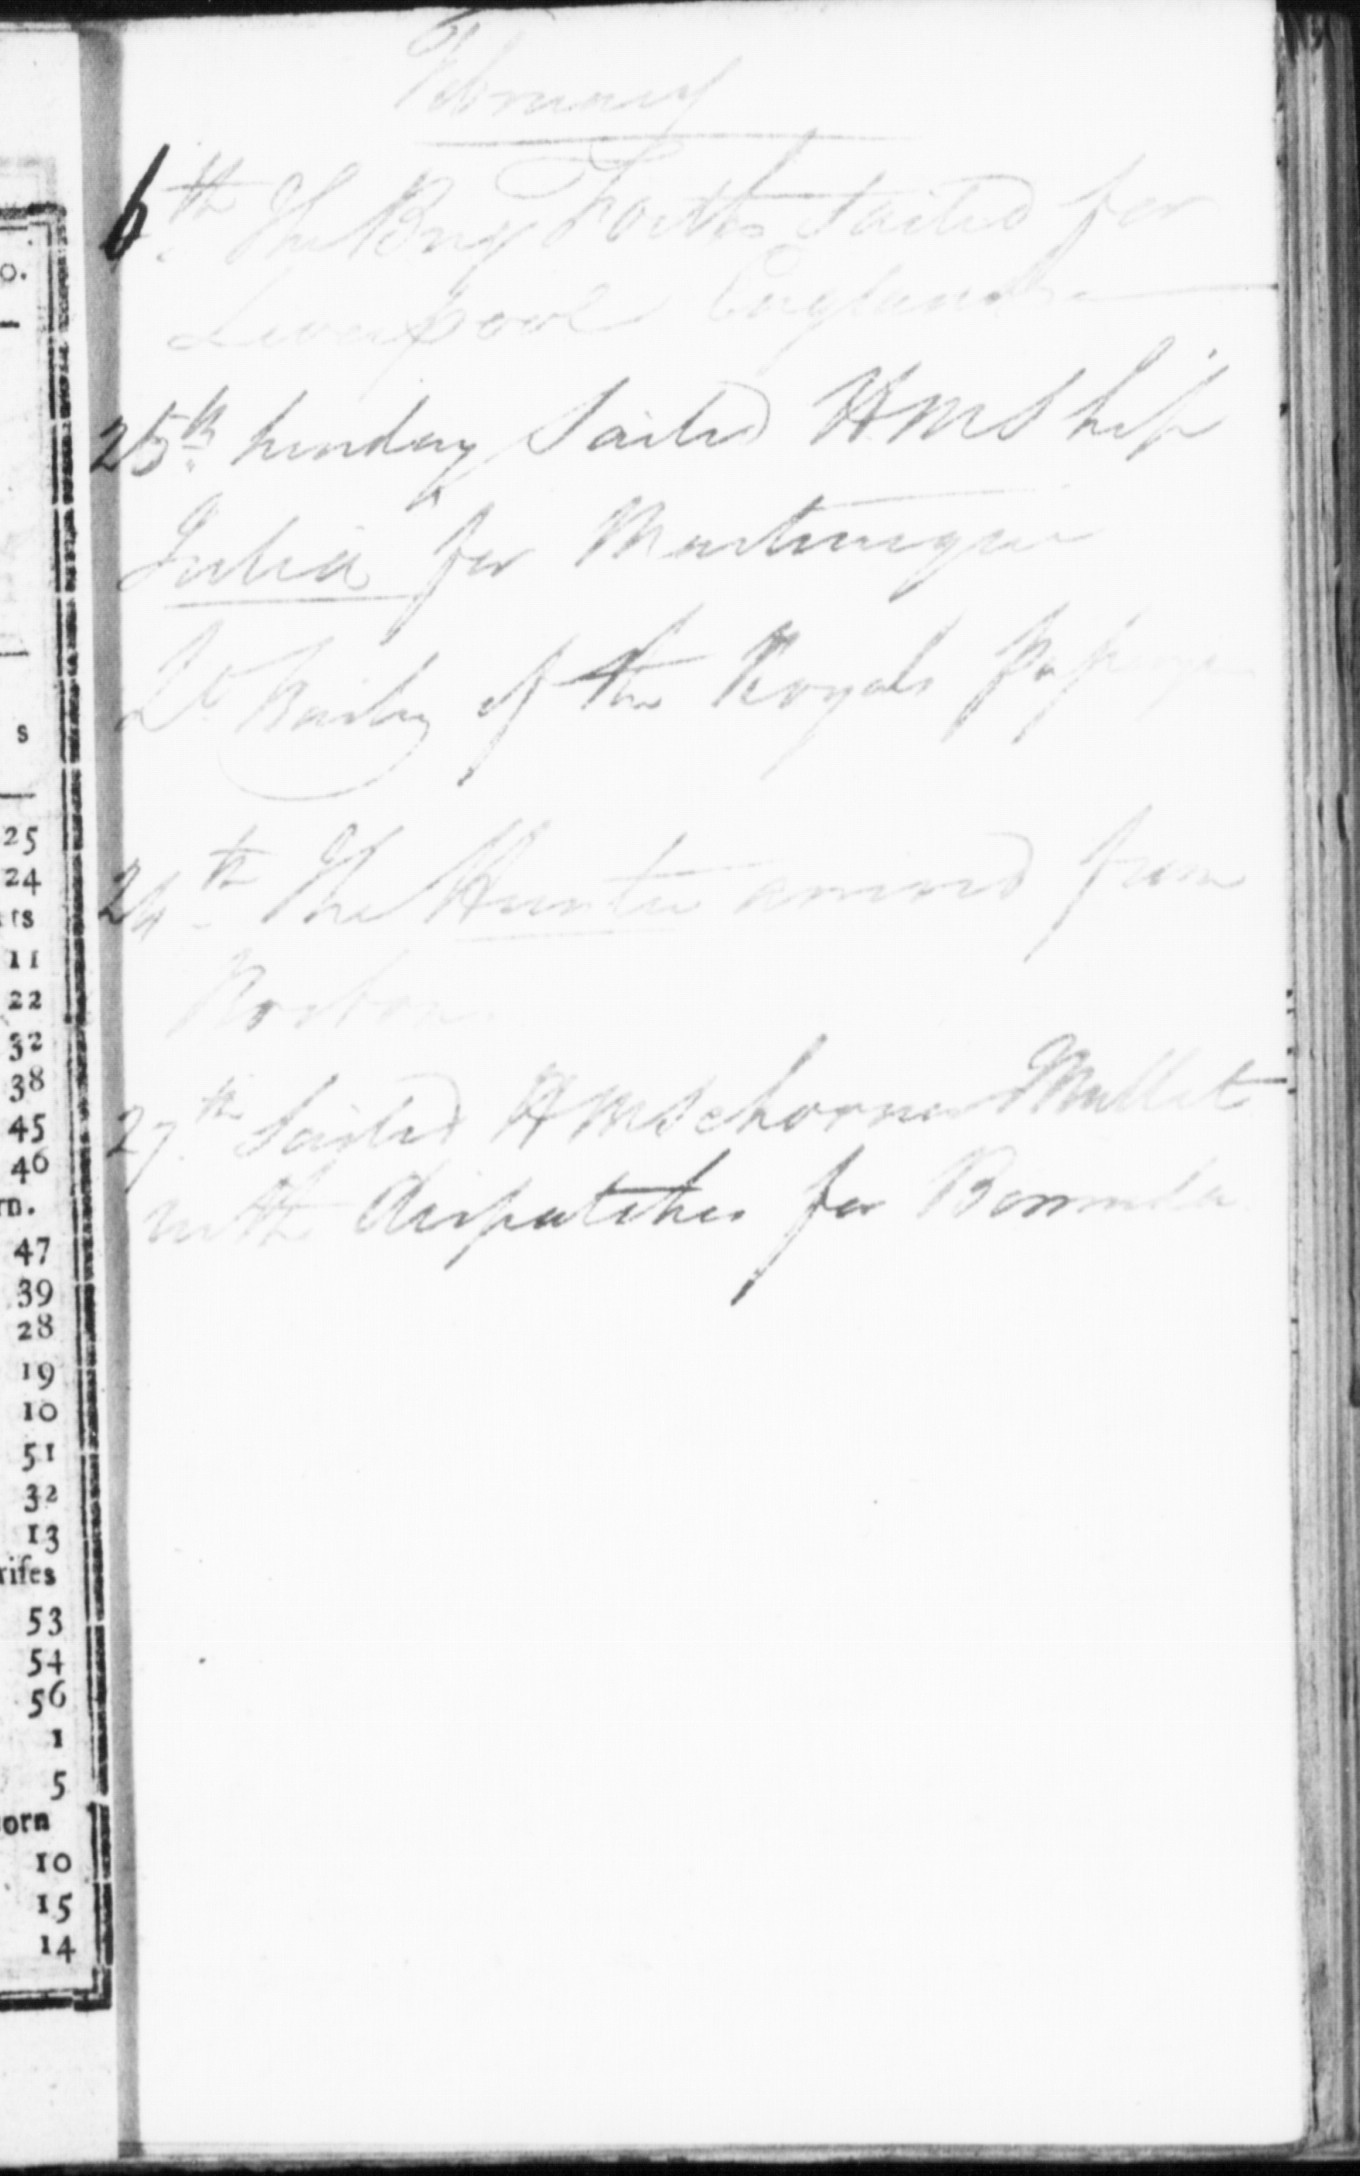 o.
s
25
24
rts
11
22
32
38
45
46
rn.
47
39
28
19
10
51
32
13
rifes
53
54
56
1
5
orn
10
15
14
February
6th The Brig Forth Sailed for
Liverpool England
25th Sunday Sailed HMShip
Julia for Martinique
Lt of the Royals Passenger
24th The Hunter arrived from
Boston
27th Sailed HMSchooner Mullet
with dispatches for Bermuda